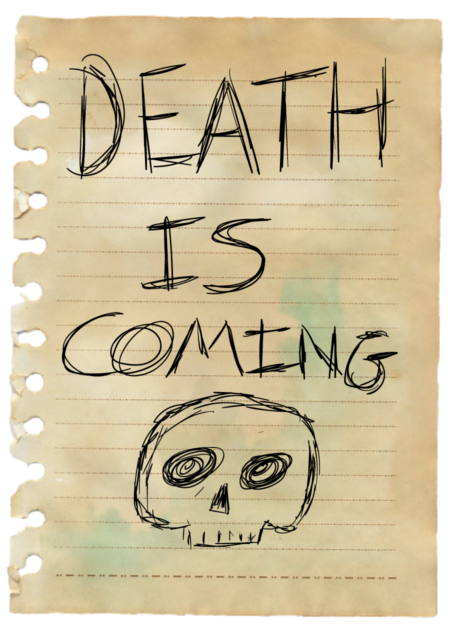 DEATH
IS
COMING